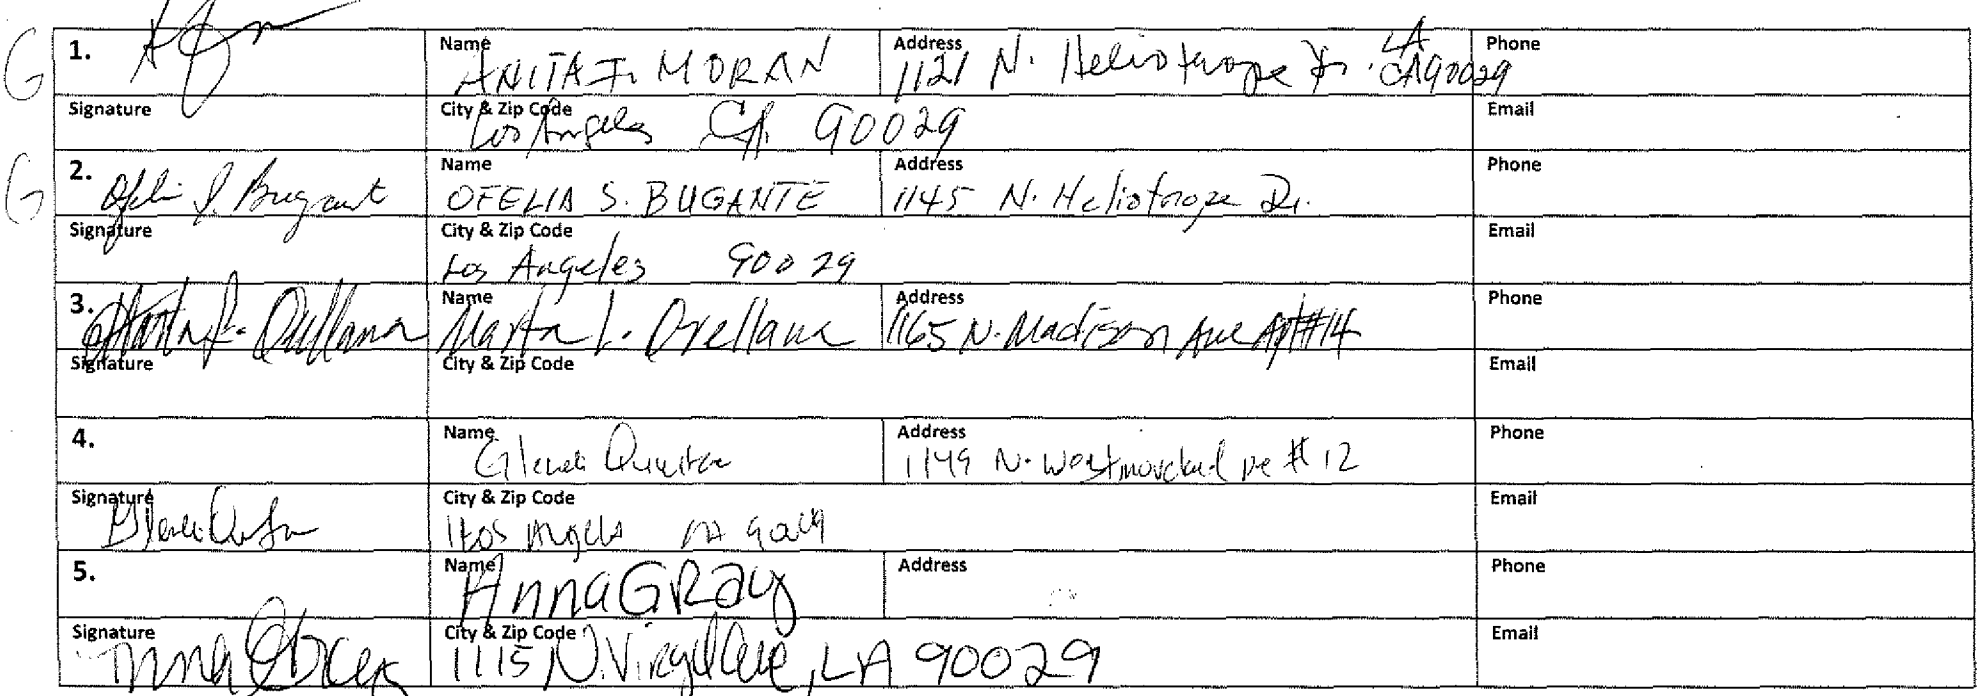 G 1. Name ANITA I. MORAN Address 1121 N. Heliotrope Dr. LA CA 90029 Phone
Signature City & Zip Code Los Angeles CA. 90029 Email
G 2. Ofeli S. Bugant Name OFELIA S. BUGANTE Address 1145 N. Heliotrope Dr. Phone
Signature City & Zip Code Los Angeles 90029 Email
3. Marta L. Orellana Name Marta L. Orellana Address 1165 N. Madison Ave Apt #14 Phone
Signature City & Zip Code Email
4. Name Glenda Address 1149 N. Westmoreland #12 Phone
Signature City & Zip Code Los Angeles CA Email
5. Name Anna GRay Address Phone
Signature Anna City & Zip Code 1115 N. Virgil Ave, LA 90029 Email